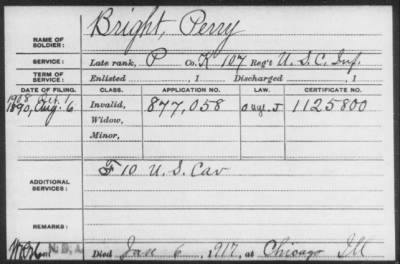 Bright, Perry
NAME OF SOLDIER:
SERVICE: Late rank, P Co. K 107 Reg't U. S. C. Inf.
TERM OF SERVICE: Enlisted , 1 Discharged , 1
DATE OF FILING. CLASS. APPLICATION NO. LAW. CERTIFICATE NO.
1908 Oct. 1
1890, Aug. 6 Invalid, 877,058 1125800
Widow,
Minor,
ADDITIONAL SERVICES: F 10 U. S. Cav
REMARKS:
Died Jan 6, 1917, at Chicago Ill